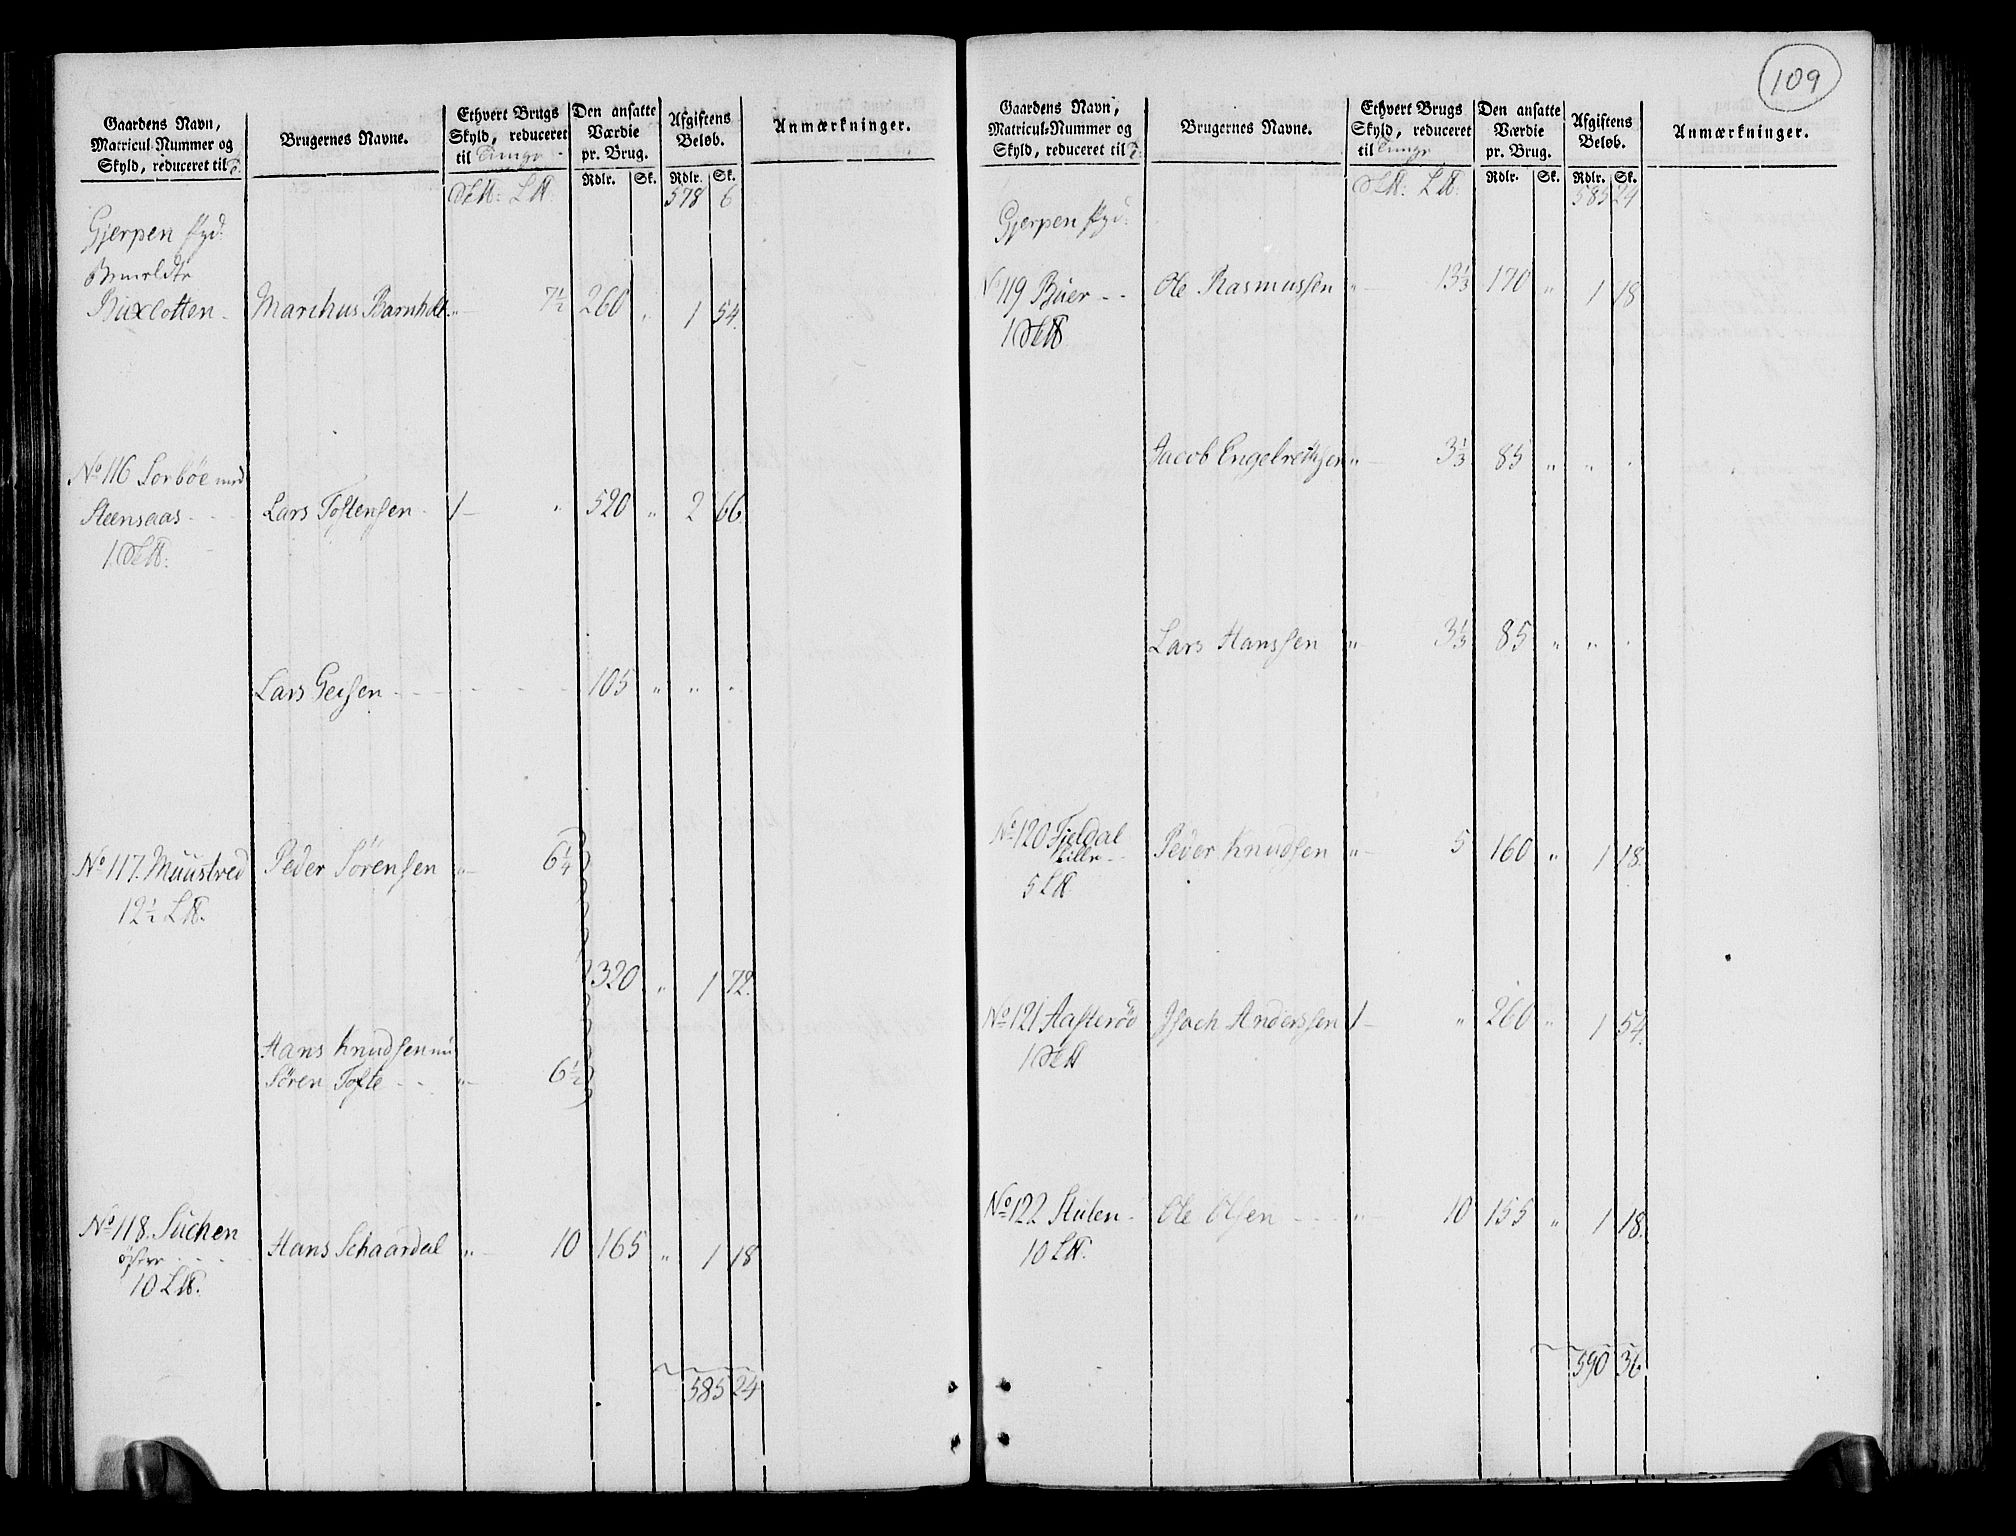 Gaardens Navn,
Matricul-Nummer og
Skyld, reduceret til
Brugernes Navne.
Ethvert Brugs
Skyld, reduceret
til Tunge
Den ansatte
Værdie
pr. Brug.
Afgiftens
Beløb.
Anmærkninger.
Rdlr. Sk. Rdlr. Sk.
578 6
Gjerpen
Marchus Barnholt " 7½ 260 " 1 54.
No 116 Sorbøe med
Steensaas Lars Tostensen 1 " 520 " 2 66.
Lars Geisen 105 " " "
No 117. Muustved Peder Sörensen " 6¼
12½ L℔.
320 " 1 72.
Hans Knudsen nu
Sören Tofte " 6½
No 118. Suchen
östre Hans Schaardal " 10 165 " 1 18
10 L℔.
585 24
109
Gaardens Navn,
Matricul-Nummer og
Skyld, reduceret til
Brugernes Navne.
Ethvert Brugs
Skyld, reduceret
til Tunge
Den ansatte
Værdie
pr. Brug.
Afgiftens
Beløb.
Anmærkninger.
Rdlr. Sk. Rdlr. Sk.
585 24
Gjerpen
No 119 Büer Ole Rasmussen " 13⅓ 170 " 1 18
Jacob Engelrethsen " 3⅓ 85 " " "
Lars Hanssen " 3⅓ 85 " " "
No 120 Fieldal
Lille Peder Knudsen " 5 160 " 1 18.
5 L℔
No 121 Aasterød Isach Anderssen 1 " 260 " 1 54.
No 122 Stulen Ole Olsen " 10 155 " 1 18.
10 L℔.
590 36